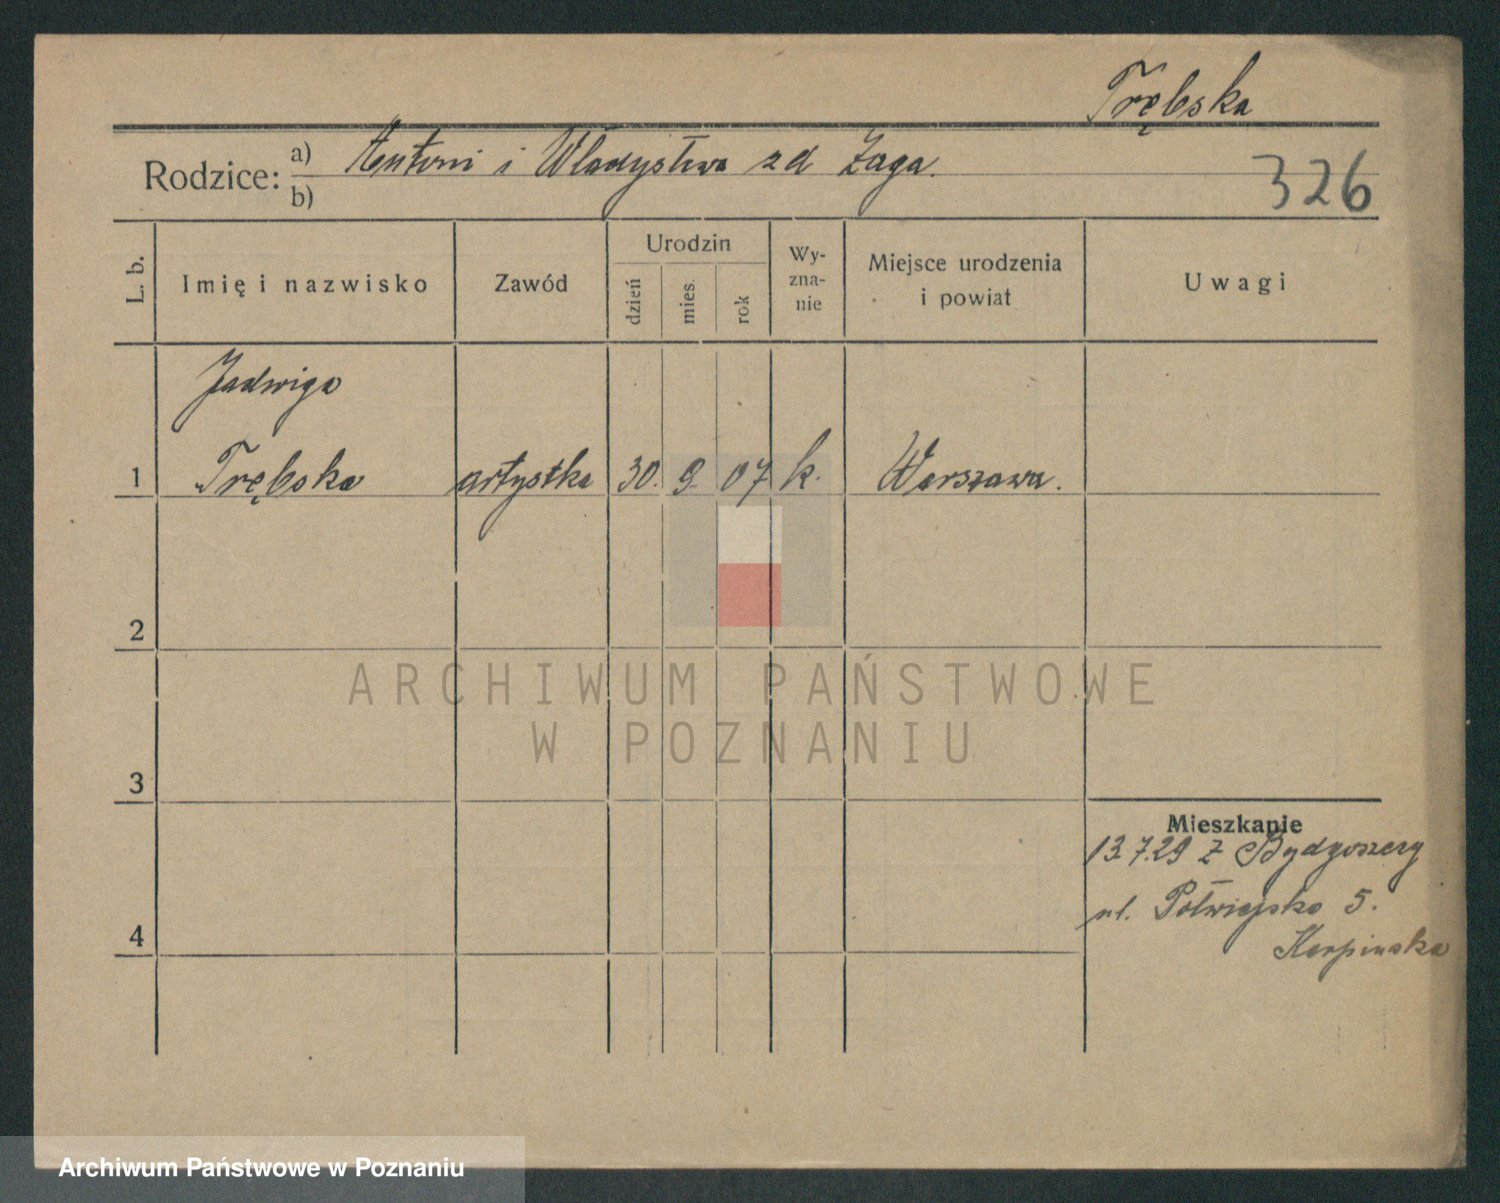 Trębska
Rodzice: a) Antoni i Władysława zd Zaga.
b)
326
L. b.
Imię i nazwisko
Zawód
Urodzin
dzień
mies.
rok
Wy-
zna-
nie
Miejsce urodzenia
i powiat
Uwagi
Jadwiga
1 Trębska artystka 30. 9. 07 k. Warszawa.
2
ARCHIWUM PAŃSTWOWE
W POZNANIU
3
Mieszkanie
13.7.29 z Bydgoszczy
ul. Półwiejska 5.
4
Karpinska
Archiwum Państwowe w Poznaniu